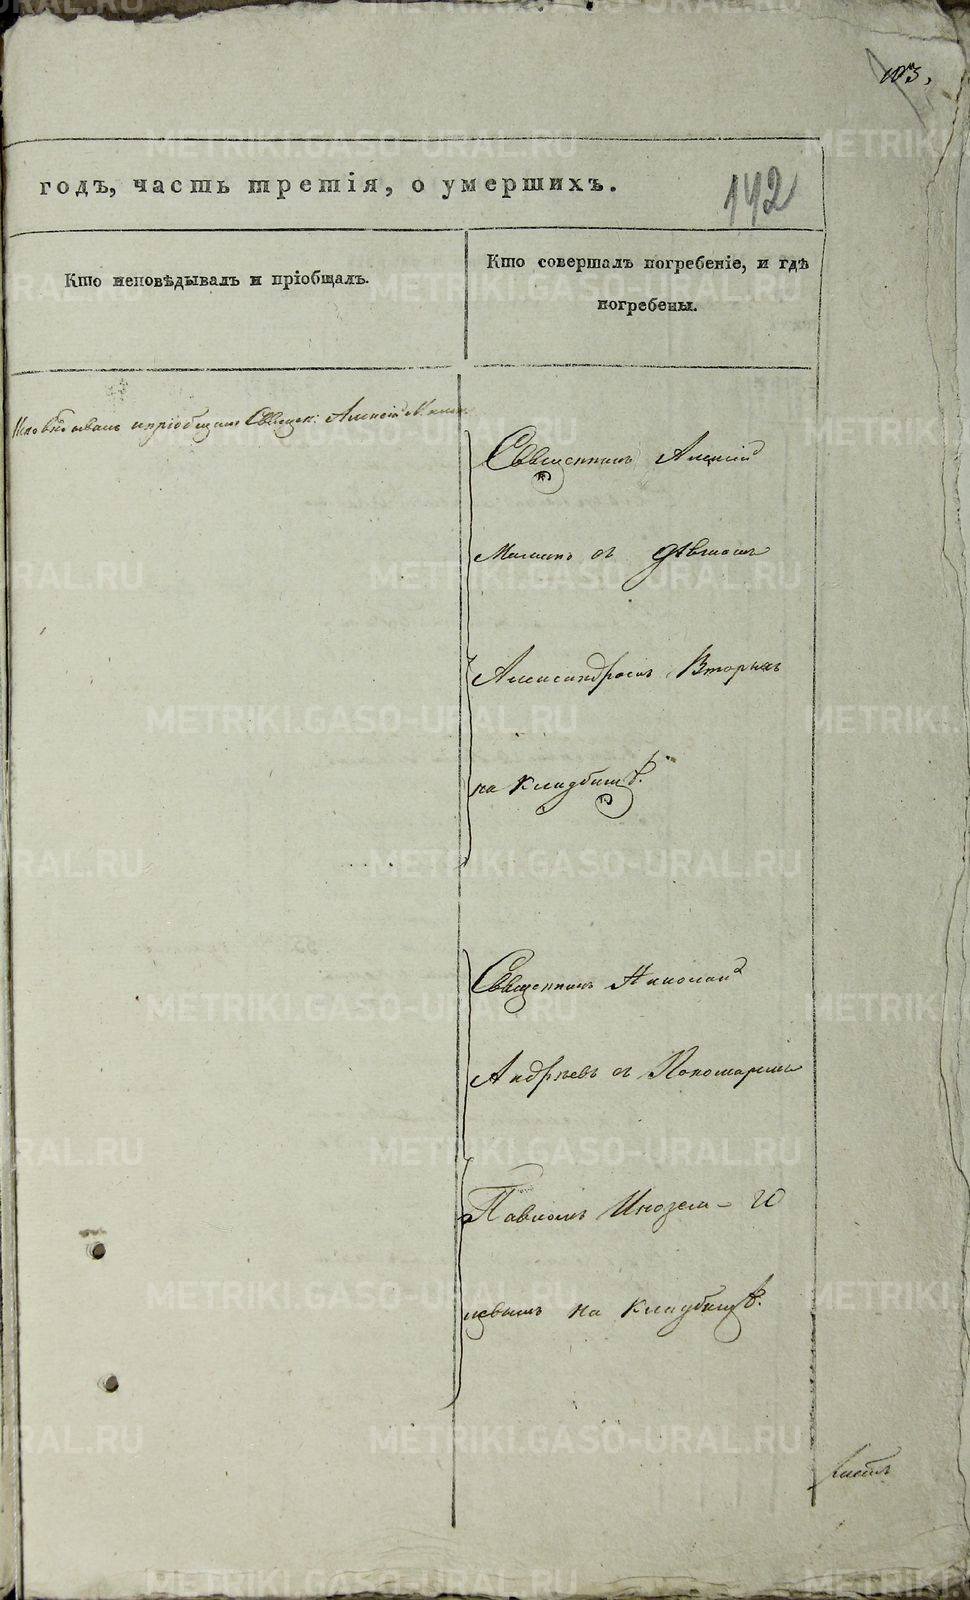 105,
142
годъ, часть третія, о умершихъ.
Кто исповѣдывалъ и пріобщалъ.
Кто совершалъ погребеніе, и гдѣ
погребены.
Исповѣдовалъ и пріобщалъ Священ: Алексій
Священникъ Алексій
съ дьякомъ
Александромъ Вторыхъ
на кладбищѣ.
Священникъ Николай
Андрѣевъ съ Пономаремъ
Павломъ Инозем-
цевымъ на кладбищѣ.
METRIKI.GASO-URAL.RU